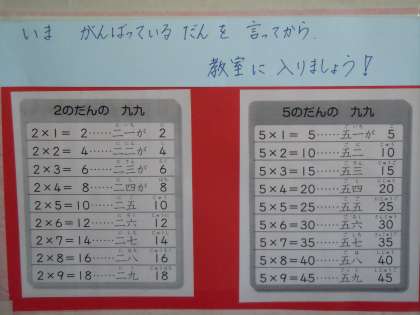 いま がんばっている だん を 言ってから
教室に 入りましょう!
2のだんの 九九
2×1= 2……二一が 2
2×2= 4……二二が 4
2×3= 6……二三が 6
2×4= 8……二四が 8
2×5=10……二五 10
2×6=12……二六 12
2×7=14……二七 14
2×8=16……二八 16
2×9=18……二九 18
5のだんの 九九
5×1= 5……五一が 5
5×2=10……五二 10
5×3=15……五三 15
5×4=20……五四 20
5×5=25……五五 25
5×6=30……五六 30
5×7=35……五七 35
5×8=40……五八 40
5×9=45……五九 45